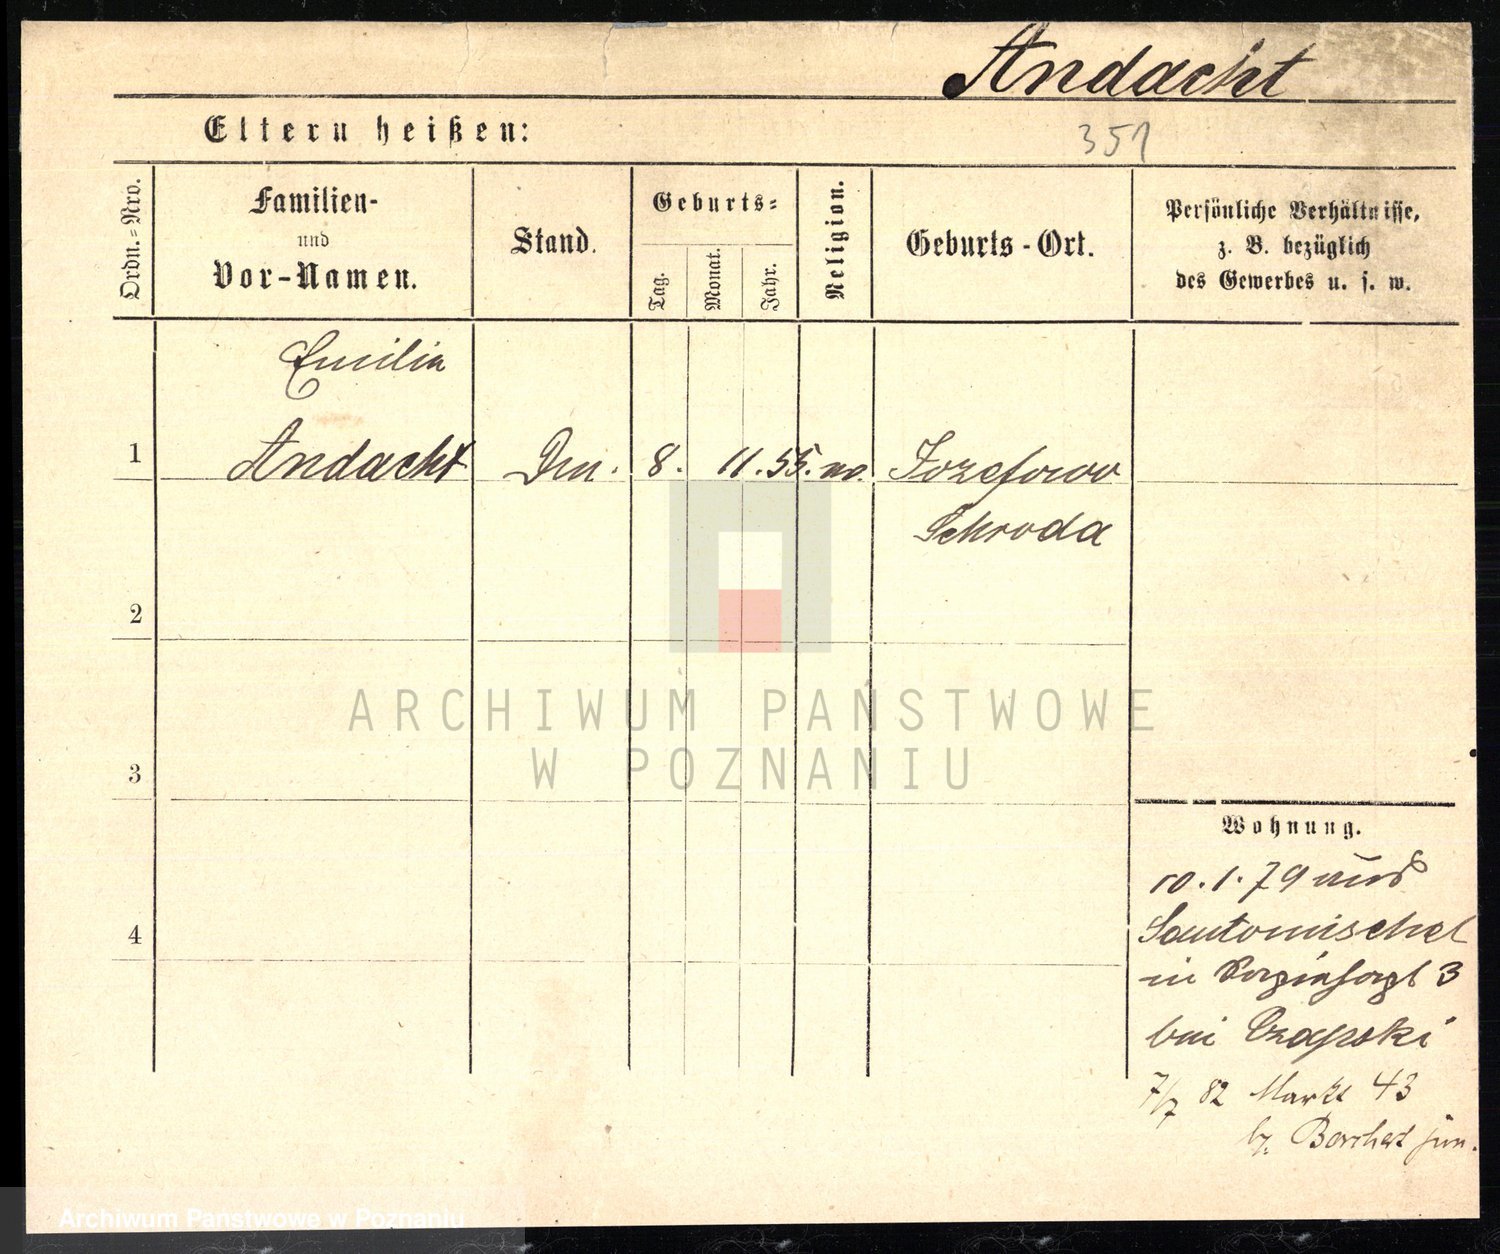 Andacht
Eltern heißen:
351
Ordn.=Nro.
Familien-
und
Vor-Namen.
Stand.
Geburts=
Tag.
Monat.
Jahr.
Religion.
Geburts-Ort.
Persönliche Verhältnisse,
z. B. bezüglich
des Gewerbes u. s. w.
Emilia
1 Andacht 8. 11. 55. Jozefowo
Schroda
2
ARCHIWUM PAŃSTWOWE
W POZNANIU
3
Wohnung.
10. 1. 79 aus
Santomischel
4
in 3
bei Czapski
7/7 82 Markt 43
b. Borchert jun.
Archiwum Państwowe w Poznaniu